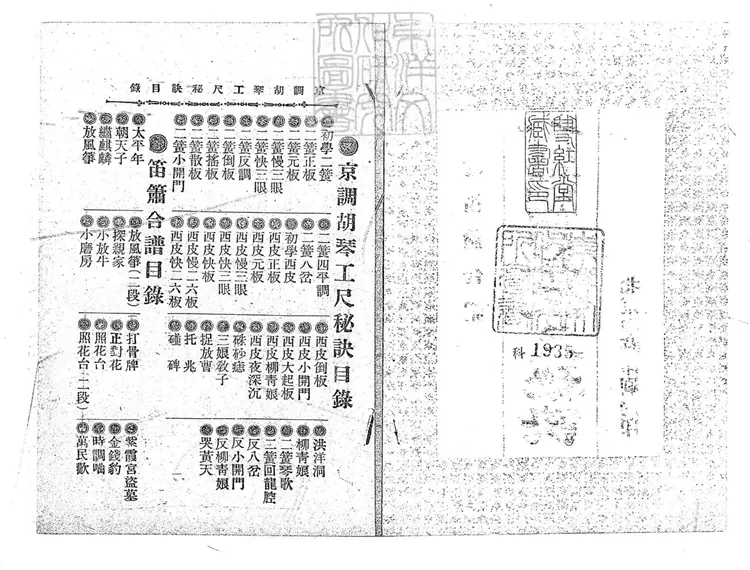 京調胡琴工尺秘訣目錄
京調胡琴工尺秘訣目錄
初學二簧
二簧正板
二簧元板
二簧慢三眼
二簧快三眼
二簧反調
二簧倒板
二簧搖板
二簧散板
二簧小開門
二簧四平調
二簧八岔
初學西皮
西皮正板
西皮元板
西皮慢三眼
西皮快三眼
西皮快板
西皮慢二六板
西皮快二六板
西皮倒板
西皮小開門
西皮大起板
西皮柳青娘
西皮夜深沉
硃砂痣
三娘敎子
捉放曹
托兆
碰碑
洪洋洞
柳青娘
二簧琴歌
二簧回龍腔
反八岔
反小開門
反柳青娘
哭黃天
笛簫合譜目錄
太平年
朝天子
繡麒麟
放風箏
放風箏(二段)
探親家
小放牛
小磨房
打骨牌
正對花
照花台
照花台(二段)
紫霞宮盜墓
金錢豹
時調
萬民歡
雙紅堂藏書印
科 1935